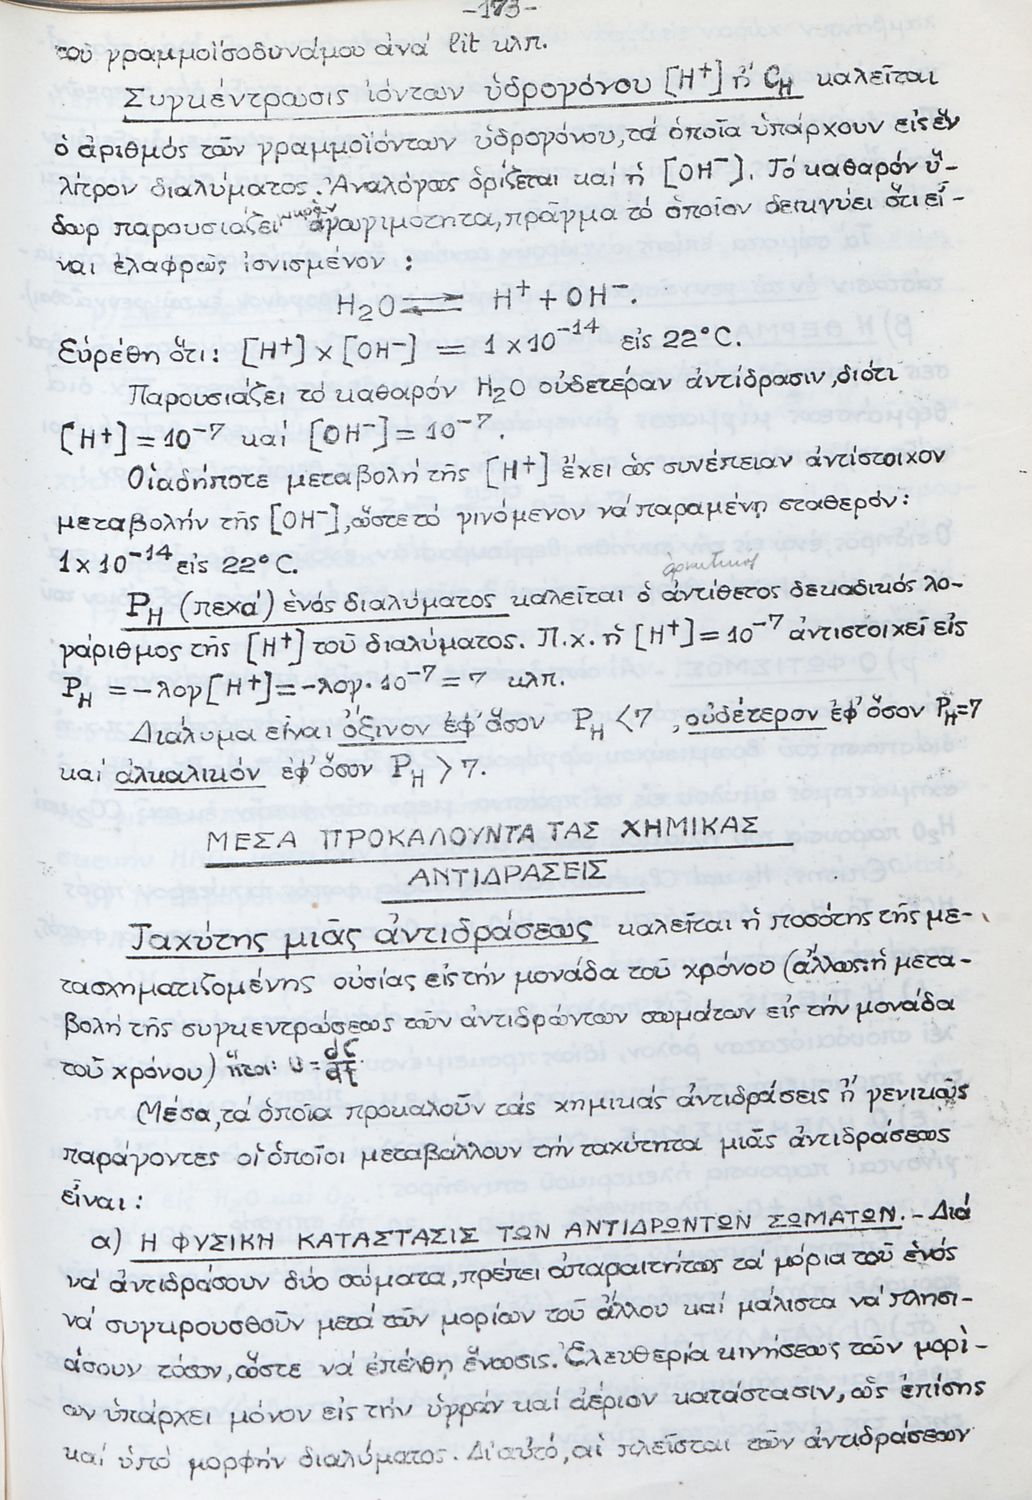 -173-
τοῦ γραμμοϊσοδυνάμου ἀνά lit κλπ.
Συγκέντρωσις ἰόντων ὑδρογόνου [H⁺] ἤ C_H καλεῖται
ὁ ἀριθμός τῶν γραμμοϊόντων ὑδρογόνου, τά ὁποῖα ὑπάρχουν εἰς ἕν
λίτρον διαλύματος. Ἀναλόγως ὁρίζεται καί ἡ [OH⁻]. Τό καθαρόν ὕ-
δωρ παρουσιάζει μικράν ἀγωγιμότητα, πρᾶγμα τό ὁποῖον δεικνύει ὅτι εἶ-
ναι ἐλαφρῶς ἰονισμένον :
H₂O ⇌ H⁺ + OH⁻.
Εὑρέθη ὅτι: [H⁺] x [OH⁻] = 1 x 10⁻¹⁴ εἰς 22°C.
Παρουσιάζει τό καθαρόν H₂O οὐδετέραν ἀντίδρασιν, διότι
[H⁺] = 10⁻⁷ καί [OH⁻] = 10⁻⁷.
Οἱαδήποτε μεταβολή τῆς [H⁺] ἔχει ὡς συνέπειαν ἀντίστοιχον
μεταβολήν τῆς [OH⁻], ὥστε τό γινόμενον νά παραμένῃ σταθερόν:
1 x 10⁻¹⁴ εἰς 22°C.
ἀρνητικός
P_H (πεχά) ἑνός διαλύματος καλεῖται ὁ ἀντίθετος δεκαδικός λο-
γάριθμος τῆς [H⁺] τοῦ διαλύματος. Π.χ. ἡ [H⁺] = 10⁻⁷ ἀντιστοιχεῖ εἰς
P_H = -λογ[H⁺] = -λογ. 10⁻⁷ = 7 κλπ.
Διάλυμα εἶναι ὄξινον ἐφ' ὅσον P_H < 7, οὐδέτερον ἐφ' ὅσον P_H = 7
καί ἀλκαλικόν ἐφ' ὅσον P_H > 7.
ΜΕΣΑ ΠΡΟΚΑΛΟΥΝΤΑ ΤΑΣ ΧΗΜΙΚΑΣ
ΑΝΤΙΔΡΑΣΕΙΣ
Ταχύτης μιᾶς ἀντιδράσεως καλεῖται ἡ ποσότης τῆς με-
τασχηματιζομένης οὐσίας εἰς τήν μονάδα τοῦ χρόνου (ἄλλως: ἡ μετα-
βολή τῆς συγκεντρώσεως τῶν ἀντιδρώντων σωμάτων εἰς τήν μονάδα
τοῦ χρόνου) ἤτοι: υ = dC/dt
Μέσα, τά ὁποῖα προκαλοῦν τάς χημικάς ἀντιδράσεις ἤ γενικῶς
παράγοντες οἱ ὁποῖοι μεταβάλλουν τήν ταχύτητα μιᾶς ἀντιδράσεως
εἶναι :
α) Η ΦΥΣΙΚΗ ΚΑΤΑΣΤΑΣΙΣ ΤΩΝ ΑΝΤΙΔΡΩΝΤΩΝ ΣΩΜΑΤΩΝ. - Διά
νά ἀντιδράσουν δύο σώματα, πρέπει ἀπαραιτήτως τά μόρια τοῦ ἑνός
νά συγκρουσθοῦν μετά τῶν μορίων τοῦ ἄλλου καί μάλιστα νά πλησι-
άσουν τόσον, ὥστε νά ἐπέλθῃ ἕνωσις. Ἐλευθερία κινήσεως τῶν μορί-
ων ὑπάρχει μόνον εἰς τήν ὑγράν καί ἀέριον κατάστασιν, ὡς ἐπίσης
καί ὑπό μορφήν διαλύματος. Δι' αὐτό, αἱ πλεῖσται τῶν ἀντιδράσεων